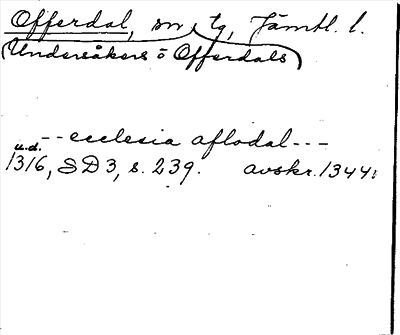 Offerdal, sn, tg, Jämtl. l.
(Undersåkers o Offerdals)
--ecclesia aflodal---
u.d.
1316, SD3, s. 239. avskr. 1344: